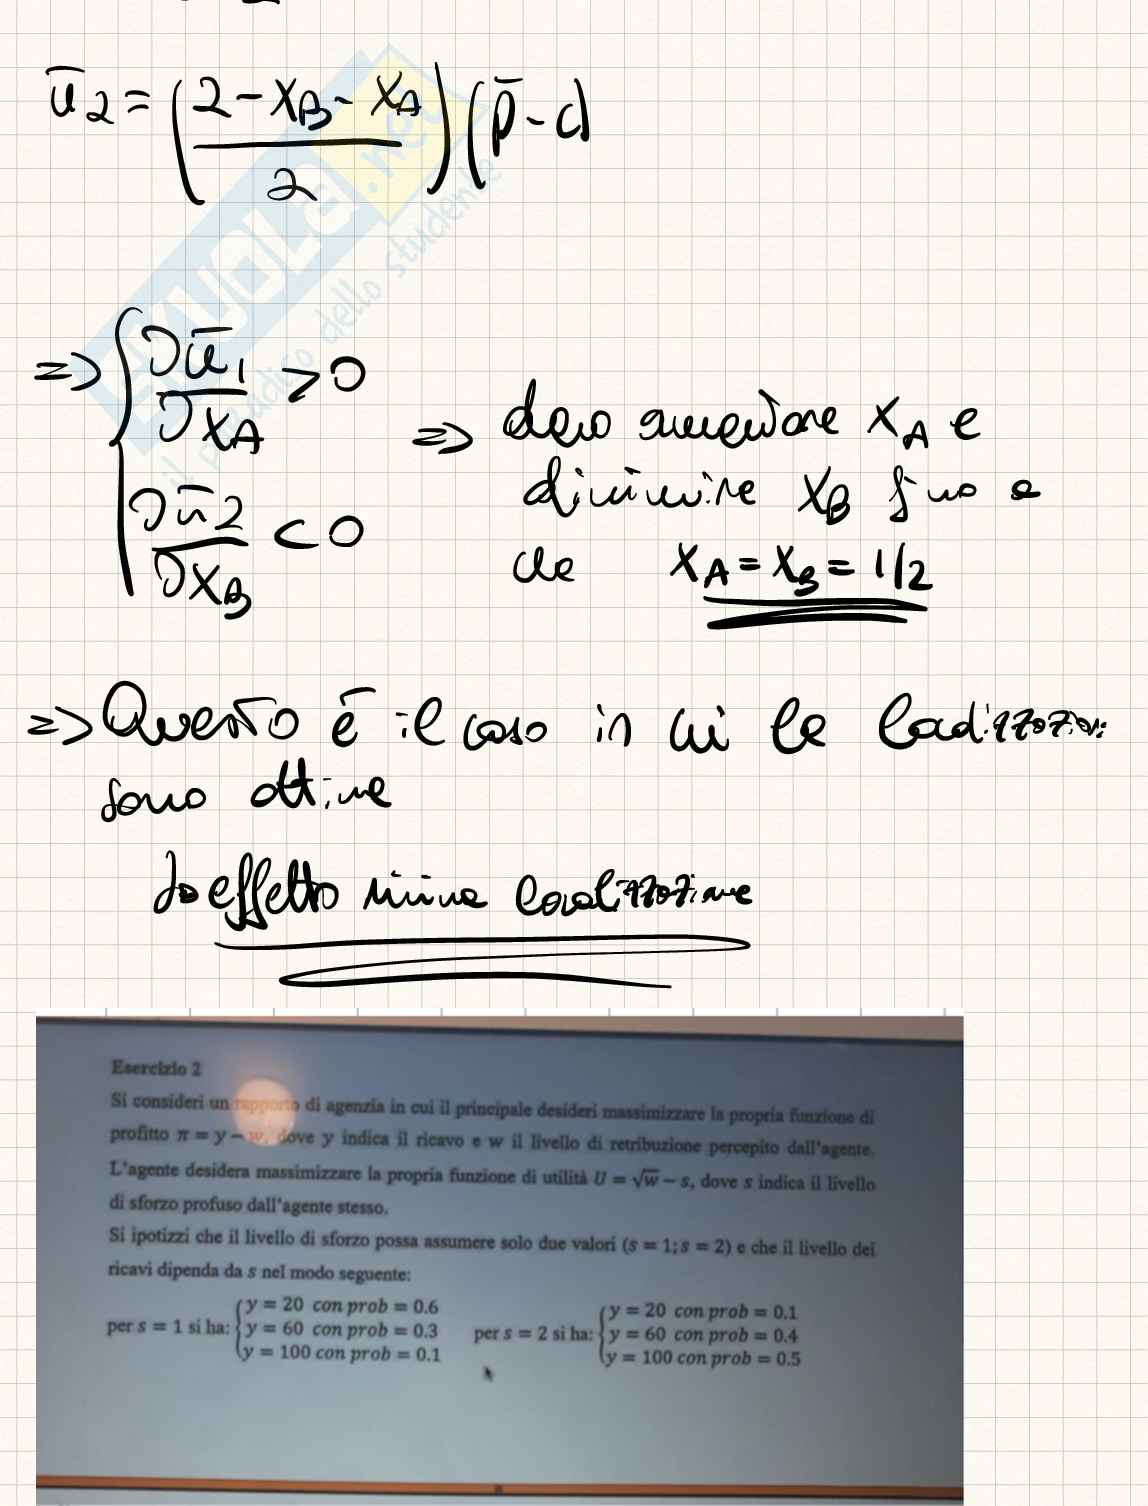 ū₂ = ((2 - x_B - x_A) / 2) (p̄ - c)
=> { ∂ū₁ / ∂x_A > 0
∂ū₂ / ∂x_B < 0
=> devo aumentare x_A e
diminuire x_B fino a
che x_A = x_B = 1/2
=> Questo è il caso in cui le localizzazioni
sono ottime
↳ effetto minima localizzazione
SKUOLA.net
il paradiso dello studente
Esercizio 2
Si consideri un rapporto di agenzia in cui il principale desideri massimizzare la propria funzione di
profitto π = y − w, dove y indica il ricavo e w il livello di retribuzione percepito dall'agente.
L'agente desidera massimizzare la propria funzione di utilità U = √w − s, dove s indica il livello
di sforzo profuso dall'agente stesso.
Si ipotizzi che il livello di sforzo possa assumere solo due valori (s = 1; s = 2) e che il livello dei
ricavi dipenda da s nel modo seguente:
per s = 1 si ha: { y = 20 con prob = 0.6
y = 60 con prob = 0.3
y = 100 con prob = 0.1
per s = 2 si ha: { y = 20 con prob = 0.1
y = 60 con prob = 0.4
y = 100 con prob = 0.5